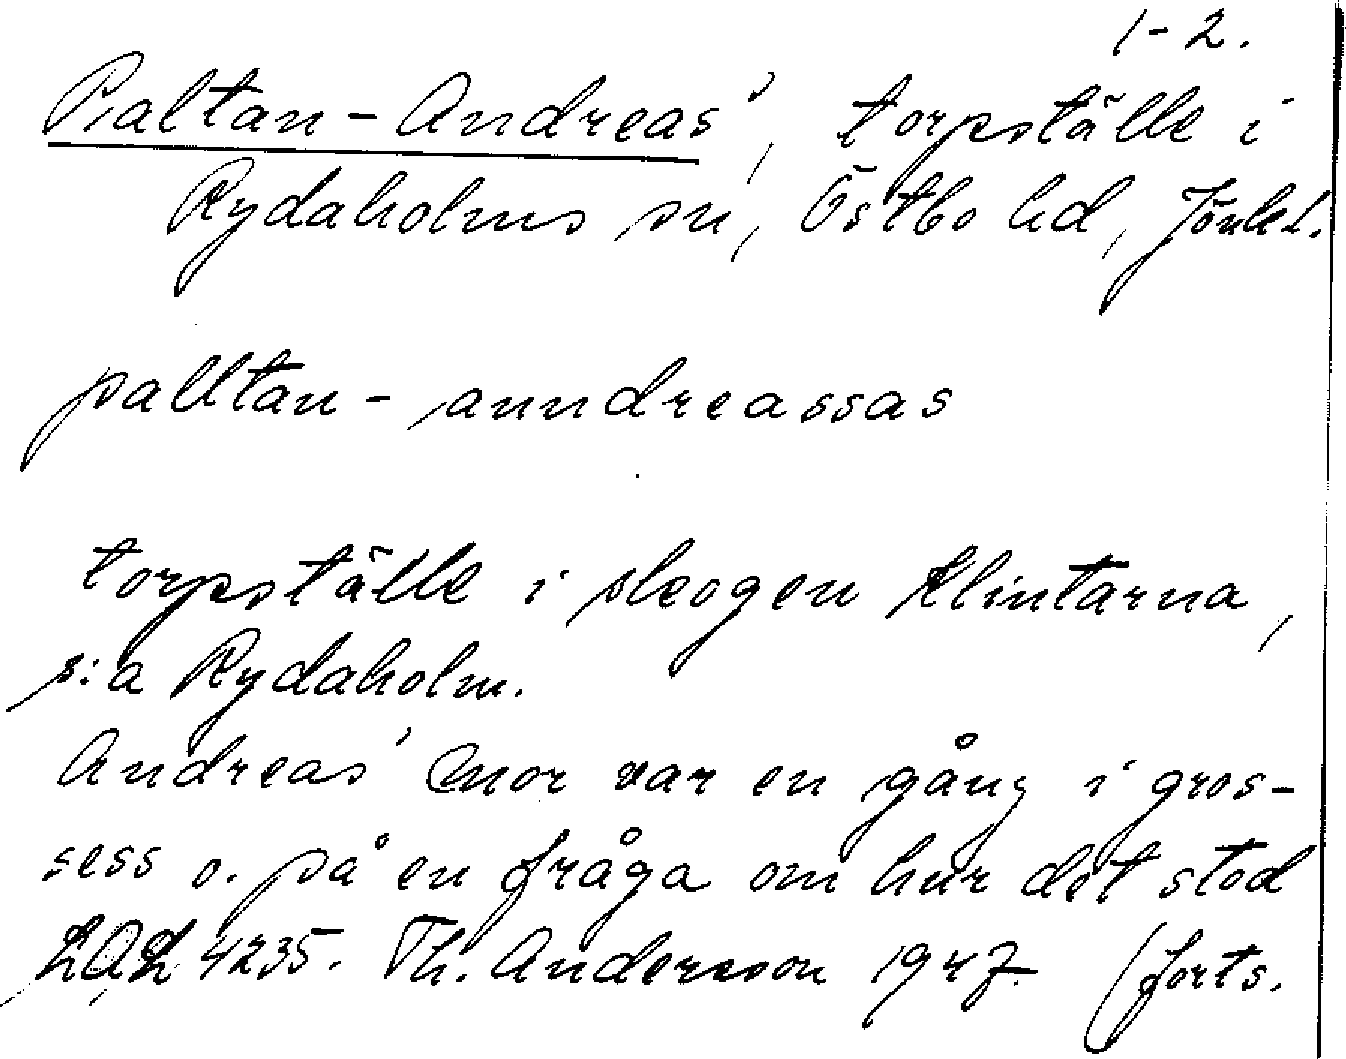 1-2.
Paltan-Andreas', torpställe i
Rydaholms sn, Östbo hd, Jönk l.
palltan-anndreassas
torpställe i skogen Klintarna,
s:a Rydaholm.
Andreas' mor var en gång i gros-
sess o. på en fråga om hur det stod
4235. Th. Andersson 1947. (forts.